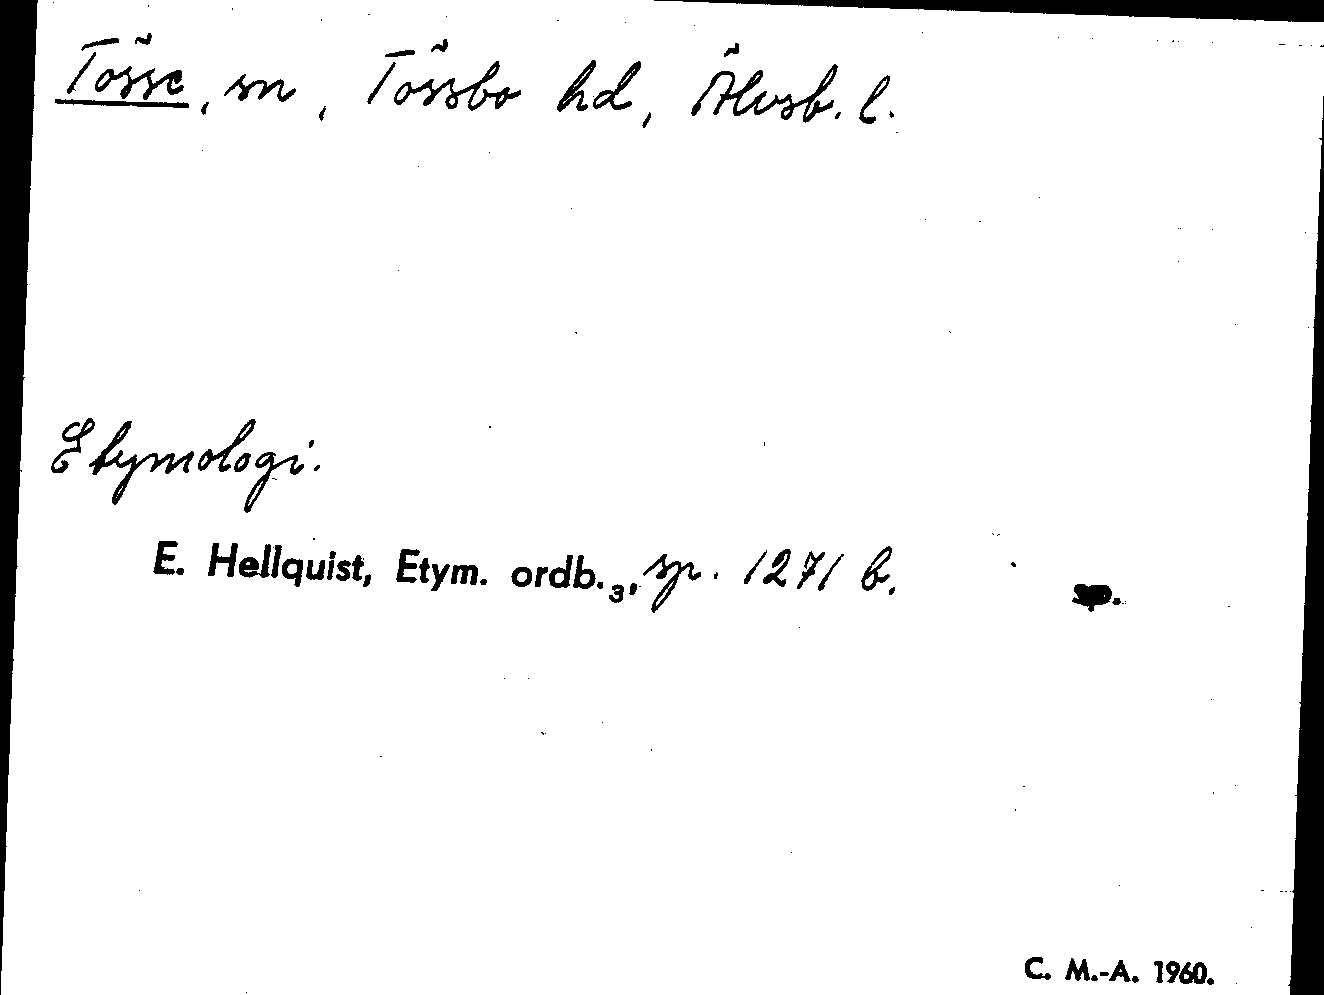 Tösse, sn, Tössbo hd, Älvsb. l.
Etymologi.
E. Hellquist, Etym. ordb.₃, sp. 1271 b. sp.
C. M.-A. 1960.